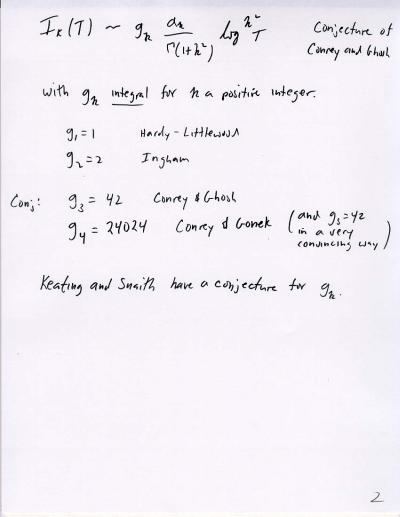 I_k(T) ~ g_k a_k/Γ(1+k²) log^{k²} T    Conjecture of
Conrey and Ghosh
with g_k integral for k a positive integer.
g₁ = 1    Hardy-Littlewood
g₂ = 2    Ingham
Conj: g₃ = 42    Conrey & Ghosh
g₄ = 24024    Conrey & Gonek (and g₃ = 42
in a very
convincing way)
Keating and Snaith have a conjecture for g_k.
2